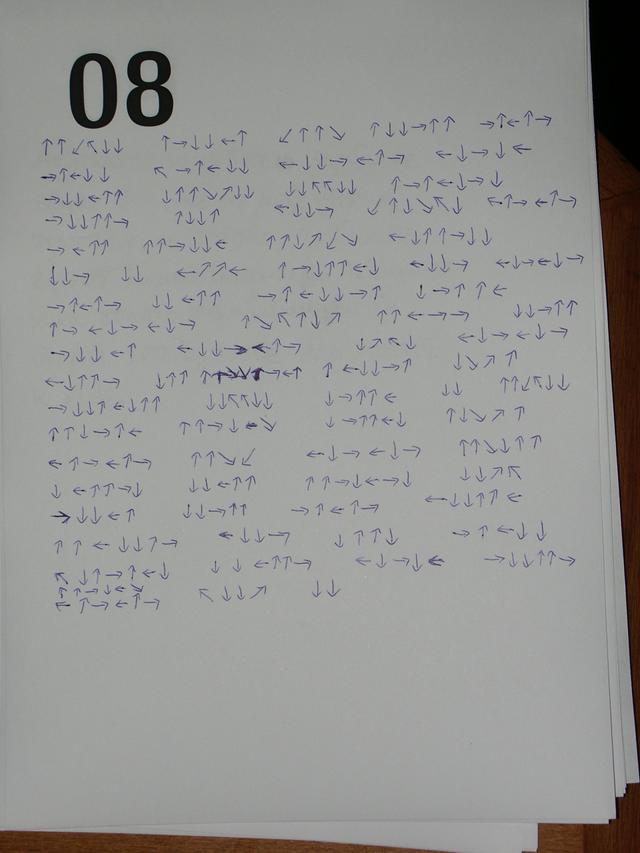 08
↑↑↙↖↓↓ ↑→↓↓←↑ ↙↑↑↘ ↑↓↓→↑↑ →↑←↑→
→↑←↓↓ ↖→↑←↓↓ ←↓↓→←↑→ ←↓→↓←
→↓↓←↑↑ ↓↑↑↘↗↓↓ ↓↓↖↖↓↓ ↑→↑←↓→↓
→↓↓↑↑→ ↑↓↓↑ ←↓↓→ ↙↑↓↘↖↓ ←↑→←↑→
→←↑↑ ↑↑→↓↓← ↑↑↓↗↙↘ ←↓↑↑→↓↓
↓↓→ ↓↓ ←↗↗← ↑→↓↑↑←↓ ←↓↓→ ←↓→←↓→
→↑←↑→ ↓↓←↑↑ →↑←↓↓→↑ ↓→↑↑←
↑→←↓→←↓→ ↑↘↖↑↓↗ ↑↑←→→ ↓↓→↑↑
→↓↓←↑ ←↓↓→←↑→ ↓↗↖↓ ←↓→←↓→
←↓↑↑→ ↓↑↑ →←↑ ↑←↓↓→↑ ↓↘↗↑
→↓↓↑←↓↑↑ ↓↓↖↖↓↓ ↓→↑↑← ↓↓ ↑↑↙↖↓↓
↑↑↓→↑← ↑↑→↓ ↘ ↓→↑↑←↓ ↑↓↘↗↑
←↑→←↑→ ↑↑↘↙ ←↓→←↓→ ↑↑↘↓↑↑
↓←↑↑→↓ ↓↓←↑↑ ↑↑→↓←→↓ ↓↓↗↖
→↓↓←↑ ↓↓→↑↑ →↑←↑→ ←↓↓↑↑←
↑↑←↓↓↗→ ←↓↓→ ↓↑↑↓ →↑←↓↓
↖↓↑→↑←↓ ↓↓←↑↑→ ←↓→↓← →↓↓↑↑→
↑↑→↓←↘
←↑→←↑→ ↖↓↓↗ ↓↓